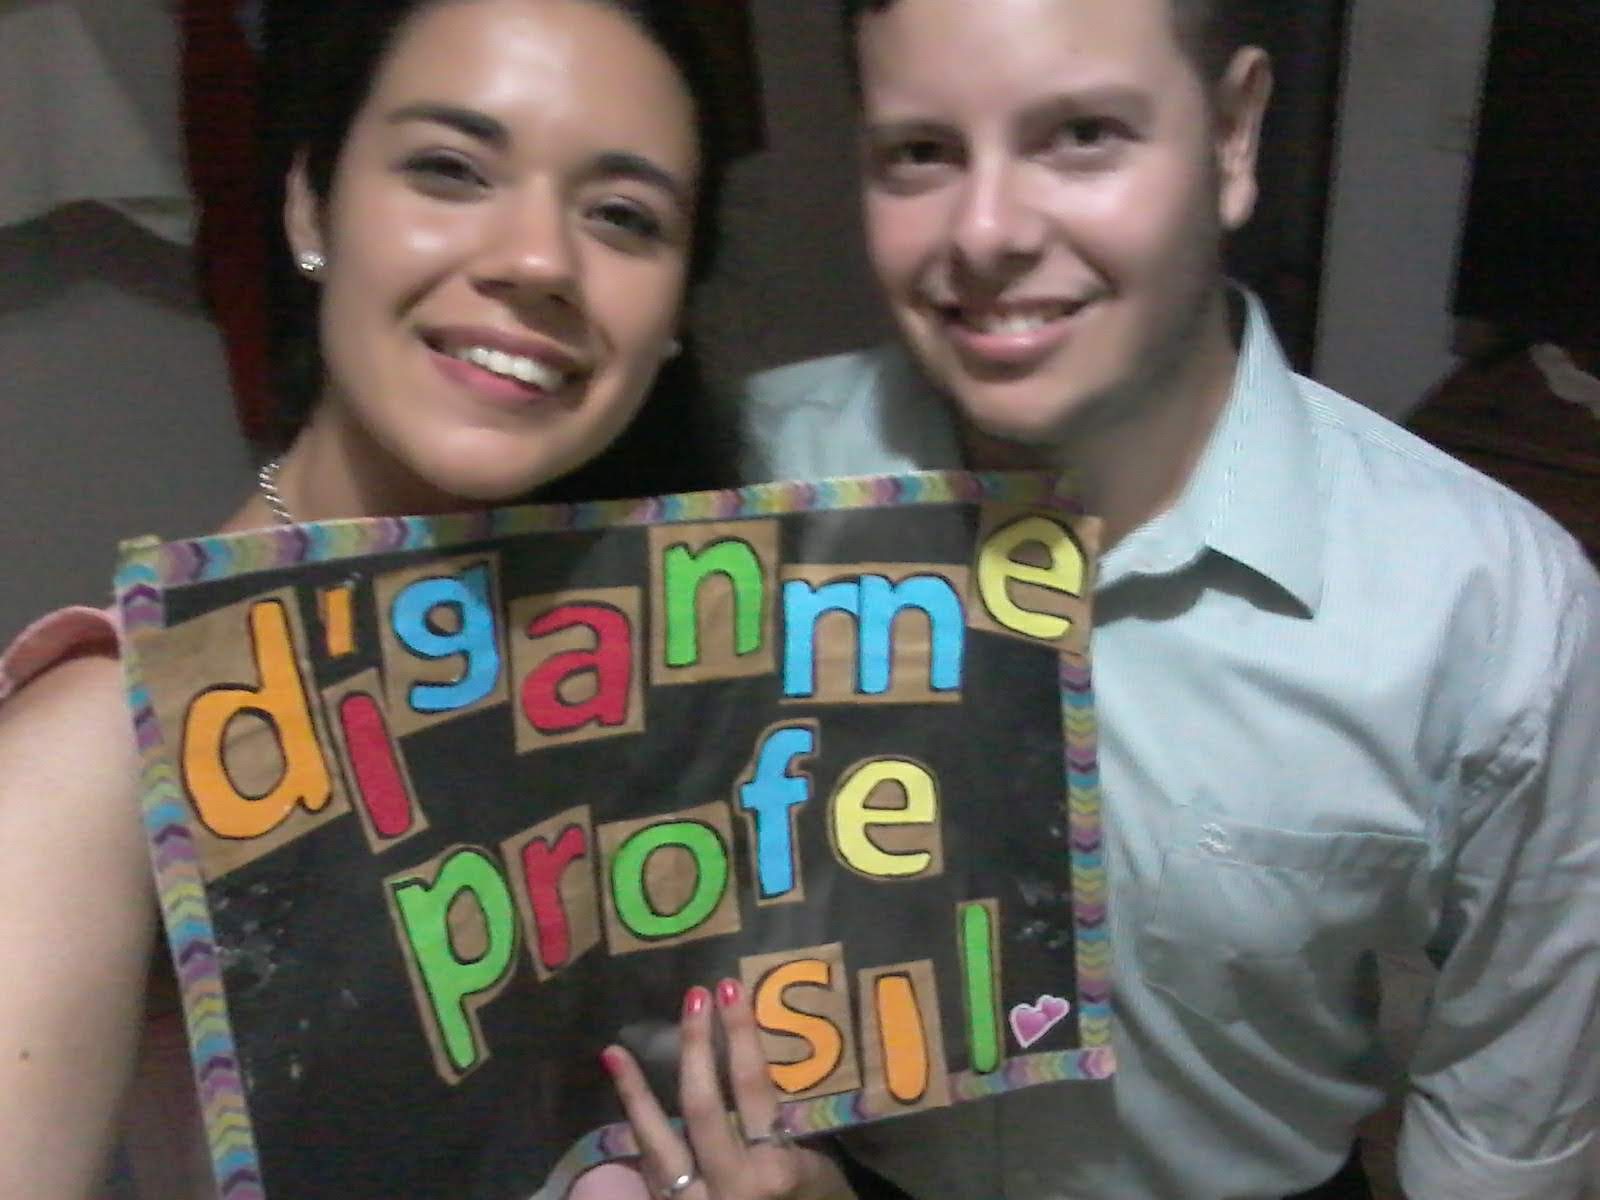 díganme
profe
sil